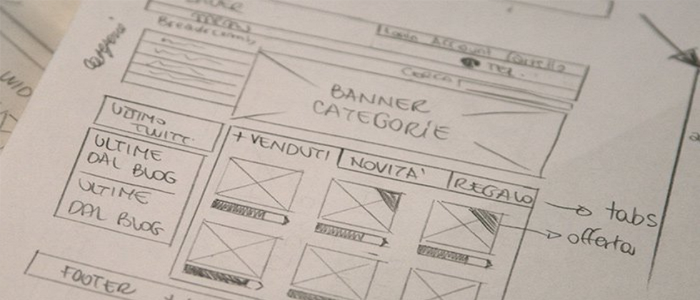 MENU
Breadcrumbs
TEL.
CERCA
BANNER
CATEGORIE
ULTIMO
TWITT.
ULTIME
DAL BLOG
ULTIME
DAL BLOG
+ VENDUTI
NOVITA'
REGALO
tabs
offerta
FOOTER